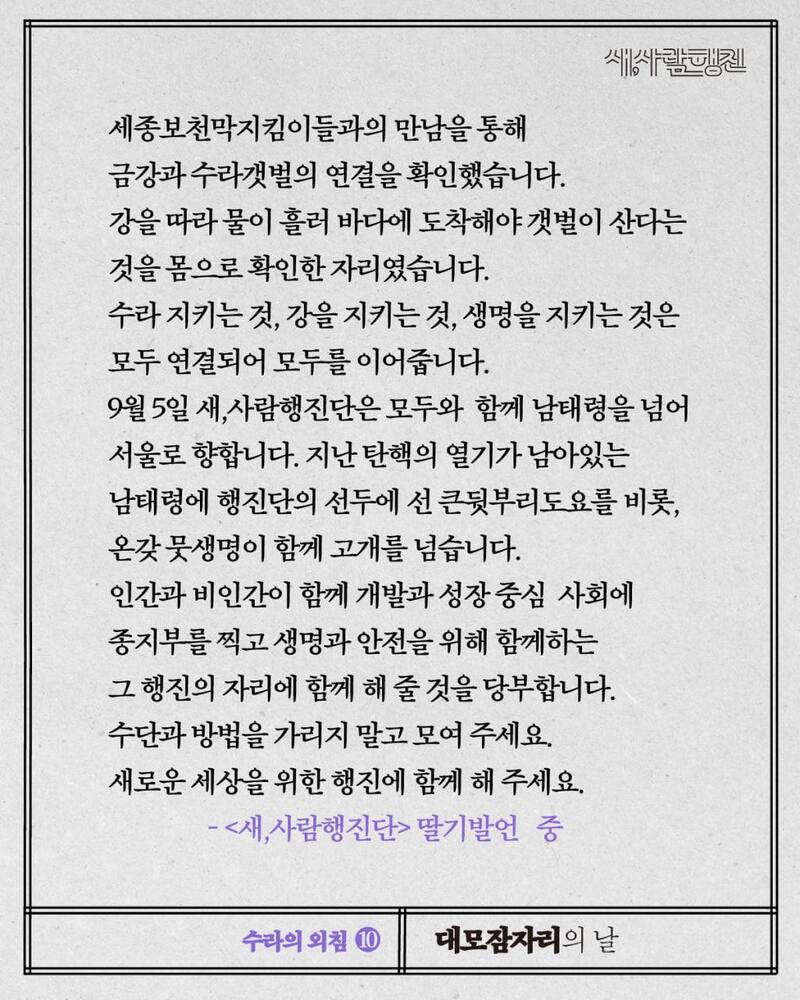 새,사람행진
세종보천막지킴이들과의 만남을 통해
금강과 수라갯벌의 연결을 확인했습니다.
강을 따라 물이 흘러 바다에 도착해야 갯벌이 산다는
것을 몸으로 확인한 자리였습니다.
수라 지키는 것, 강을 지키는 것, 생명을 지키는 것은
모두 연결되어 모두를 이어줍니다.
9월 5일 새,사람행진단은 모두와 함께 남태령을 넘어
서울로 향합니다. 지난 탄핵의 열기가 남아있는
남태령에 행진단의 선두에 선 큰뒷부리도요를 비롯,
온갖 뭇생명이 함께 고개를 넘습니다.
인간과 비인간이 함께 개발과 성장 중심 사회에
종지부를 찍고 생명과 안전을 위해 함께하는
그 행진의 자리에 함께 해 줄 것을 당부합니다.
수단과 방법을 가리지 말고 모여 주세요.
새로운 세상을 위한 행진에 함께 해 주세요.
- <새,사람행진단> 딸기발언 중
수라의 외침 ⑩
대모잠자리의 날